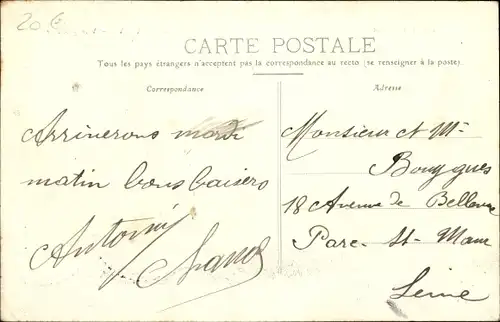 20 €
CARTE POSTALE
Tous les pays étrangers n'acceptent pas la correspondance au recto (se renseigner à la poste).
Correspondance
Arriverons mardi
matin bons baisers
Antonin
Adresse
Monsieur et Mme
Bouygues
18 Avenue de Bellevue
Parc-St-Maur
Seine